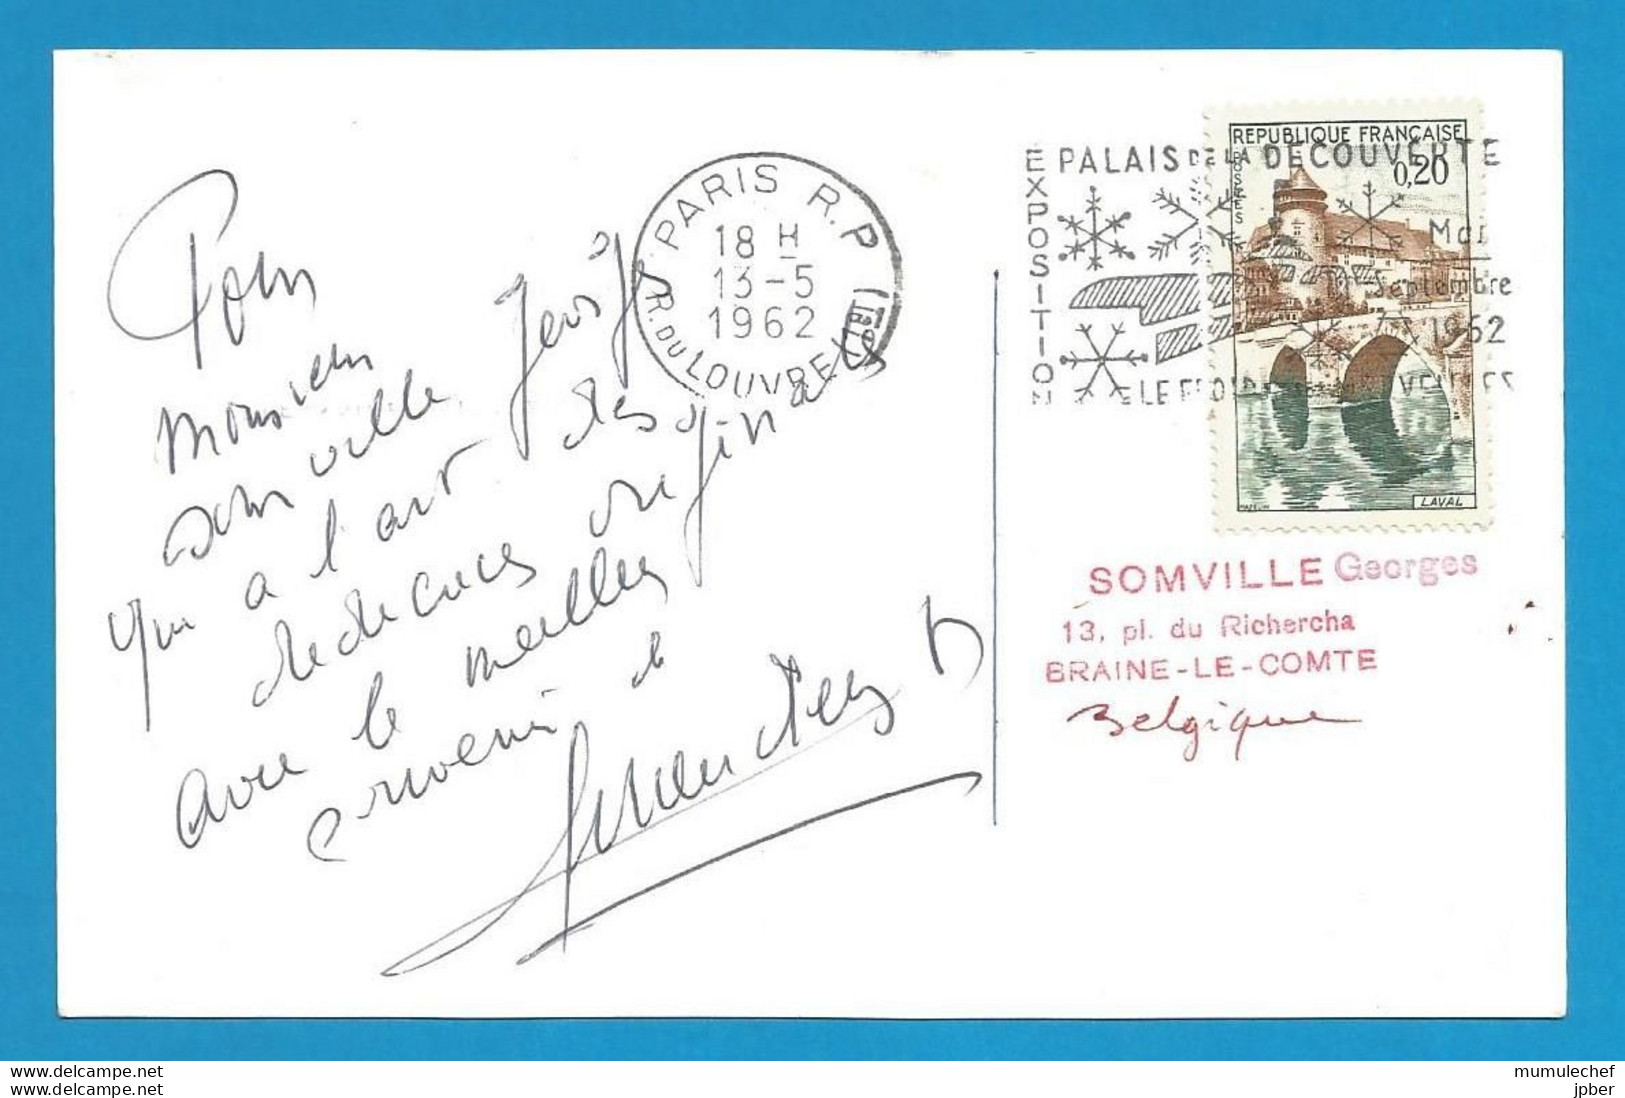 Pour
Monsieur
Somville Georges
qui a l'art des
dédicaces originales
avec le meilleur
souvenir de
PARIS R.P
18 H
13-5
1962
R. DU LOUVRE
EXPOSITION
PALAIS DE LA DECOUVERTE
Mai
Septembre
1962
REPUBLIQUE FRANÇAISE
POSTES
0,20
LAVAL
SOMVILLE Georges
13, pl. du Richercha
BRAINE-LE-COMTE
Belgique
mumulechef
jpber
www.delcampe.net
www.delcampe.net